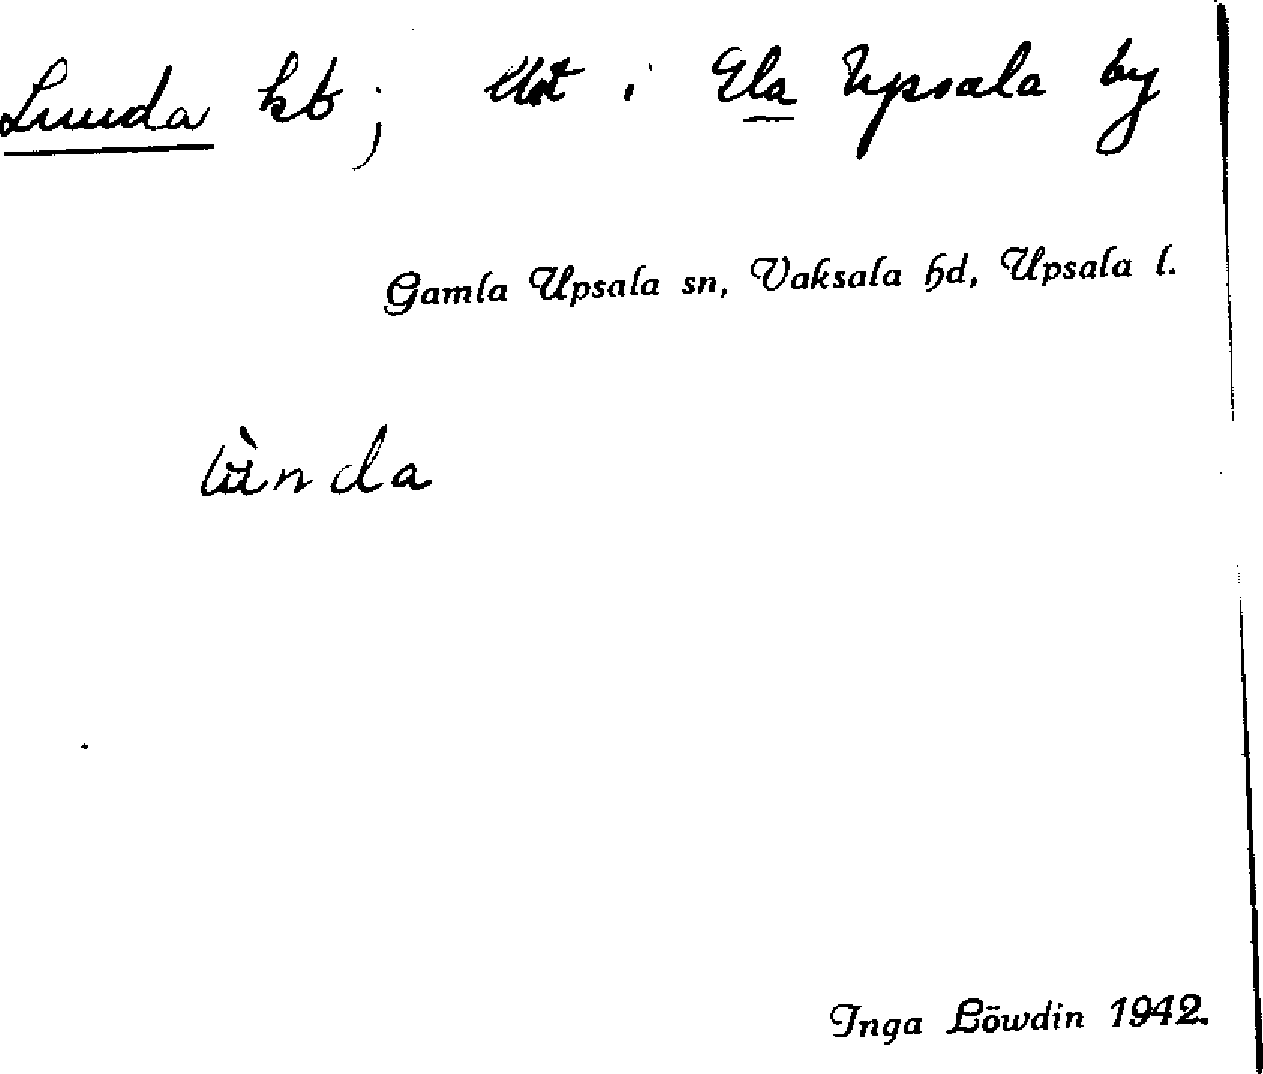 Lunda hb; utst i Gla Upsala by
Gamla Upsala sn, Vaksala hd, Upsala l.
lùnda
Inga Löwdin 1942.